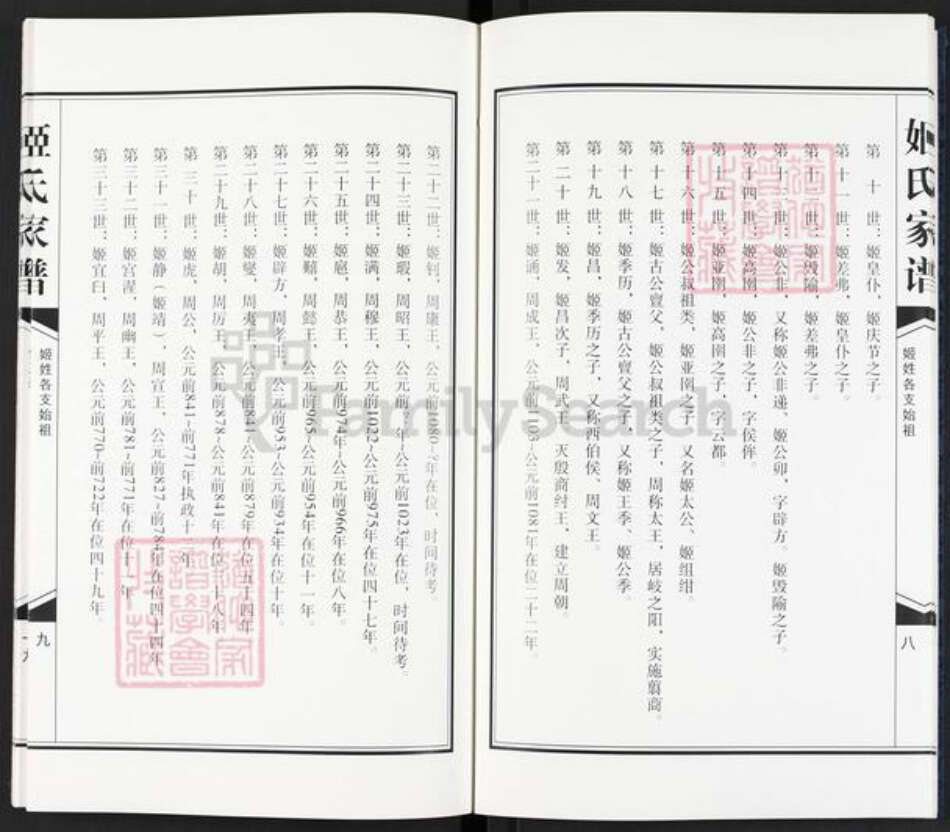 姬氏家谱
姬姓各支始祖
八
第十世：姬皇仆，姬庆节之子。
第十一世：姬差弗，姬皇仆之子。
第十二世：姬毁隃，姬差弗之子。
第十三世：姬公非，又称姬公非递、姬公卯，字辟方。姬毁隃之子。
第十四世：姬高圉，姬公非之子，字侯侔。
第十五世：姬亚圉，姬高圉之子，字云都。
第十六世：姬公叔祖类，姬亚圉之子，又名姬太公、姬组绀。
第十七世：姬古公亶父，姬公叔祖类之子，周称太王，居岐之阳，实施翦商。
第十八世：姬季历，姬古公亶父之子，又称姬王季、姬公季。
第十九世：姬昌，姬季历之子，又称西伯侯、周文王。
第二十世：姬发，姬昌次子，周武王，灭殷商纣王，建立周朝。
第二十一世：姬诵，周成王，公元前1103~公元前1081年在位二十二年。
第二十二世：姬钊，周康王，公元前1080~?年在位，时间待考。
第二十三世：姬瑕，周昭王，公元前?年~公元前1023年在位，时间待考。
第二十四世：姬满，周穆王，公元前1022~公元前975年在位四十七年。
第二十五世：姬扈，周恭王，公元前974年~公元前966年在位八年。
第二十六世：姬囏，周懿王，公元前965~公元前954年在位十一年。
第二十七世：姬辟方，周孝王，公元前953~公元前934年在位十年。
第二十八世：姬燮，周夷王，公元前847~公元前879年在位五十四年
第二十九世：姬胡，周厉王，公元前878~公元前841年在位 十八年
第三十世：姬虎，周公，公元前841~前771年执政十 年
第三十一世：姬静（姬靖），周宣王，公元前827~前784年在位四十四年
第三十二世：姬宫湦，周幽王，公元前781~前771年在位十一年
第三十三世：姬宜臼，周平王，公元前770~前722年在位四十九年。
姬氏家谱
姬姓各支始祖
九
FamilySearch